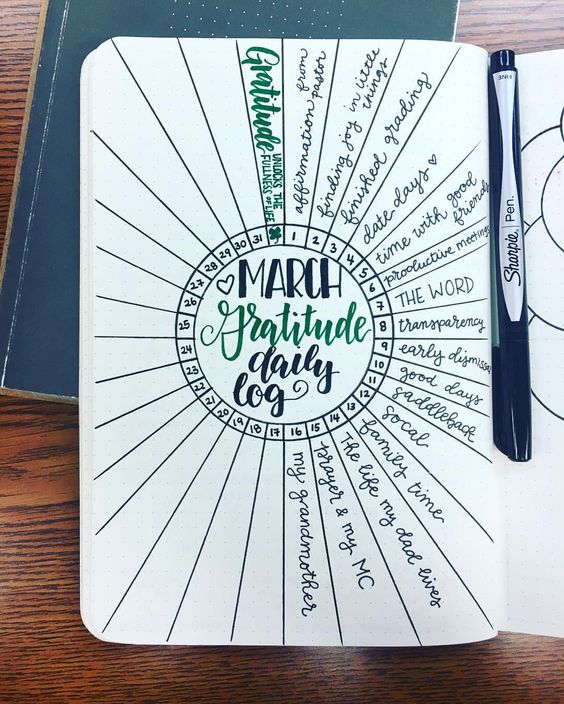 Gratitude
UNLOCKS THE
FULLNESS OF LIFE
affirmation from
pastor
finding joy in little
things
finished grading
date days ♥
time with good
friends
productive meetings
THE WORD
transparency
early dismissal
good days
saddleback
socal
family time
The life my dad lives
prayer & my MC
my grandmother
1
2
3
4
5
6
7
8
9
10
11
12
13
14
15
16
17
18
19
20
21
22
23
24
25
26
27
28
29
30
31
♡MARCH
Gratitude
daily
log
FINE
Sharpie. Pen.